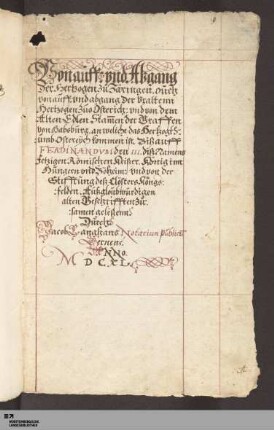 Von auff: vnd Abgang
Der Hertzogen zu Zäringen, auch
von auff: vnd abgang der vralten
Hertzogen zůo Osterich: vnd von dem
Alten Edlen Stamen der Graffen
von Habsburg, an welche das Hertzogth:
umb Osterych kommen ist. Biß auff
FERDINANDVM den III. diß Namens
jetzigen Römischen Keiser. König im
Hungern vnd Böheim: vnd von der
Stifftung deß Closters Königs:
felden. Auß glaubwürdigen
alten Geschrifften zů:
samen gelesenn.
Durch
Jacob Langhans Notarium Publicū
Bernens.
ANNO
M DC XL.